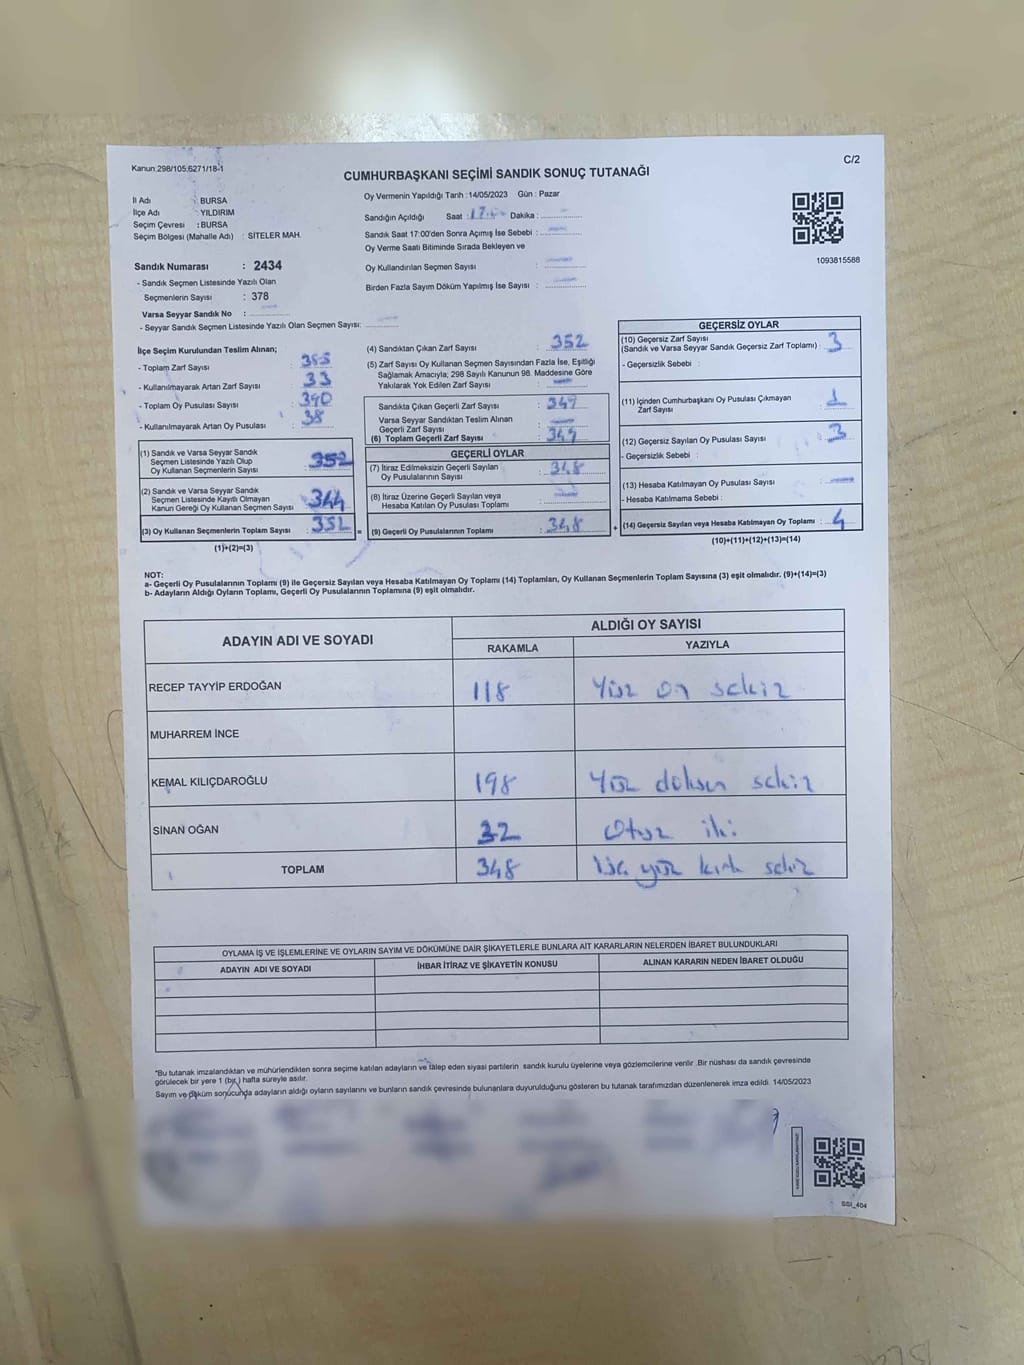 Kanun:298/105,6271/18-1
C/2
CUMHURBAŞKANI SEÇİMİ SANDIK SONUÇ TUTANAĞI
Oy Vermenin Yapıldığı Tarih :14/05/2023 Gün : Pazar
İl Adı : BURSA
İlçe Adı : YILDIRIM
Seçim Çevresi : BURSA
Seçim Bölgesi (Mahalle Adı) : SİTELER MAH.
Sandığın Açıldığı Saat : Dakika :
Sandık Saat 17:00'den Sonra Açımış İse Sebebi :
Oy Verme Saati Bitiminde Sırada Bekleyen ve
Oy Kullandırılan Seçmen Sayısı :
Birden Fazla Sayım Döküm Yapılmış İse Sayısı :
1093815588
Sandık Numarası : 2434
- Sandık Seçmen Listesinde Yazılı Olan
Seçmenlerin Sayısı : 378
Varsa Seyyar Sandık No :
- Seyyar Sandık Seçmen Listesinde Yazılı Olan Seçmen Sayısı:
İlçe Seçim Kurulundan Teslim Alınan;
- Toplam Zarf Sayısı : 385
- Kullanılmayarak Artan Zarf Sayısı : 33
- Toplam Oy Pusulası Sayısı : 390
- Kullanılmayarak Artan Oy Pusulası : 38
(1) Sandık ve Varsa Seyyar Sandık
Seçmen Listesinde Yazılı Olup
Oy Kullanan Seçmenlerin Sayısı : 352
(2) Sandık ve Varsa Seyyar Sandık
Seçmen Listesinde Kayıtlı Olmayan
Kanun Gereği Oy Kullanan Seçmen Sayısı : 344
(3) Oy Kullanan Seçmenlerin Toplam Sayısı : 352
(1)+(2)=(3)
(4) Sandıktan Çıkan Zarf Sayısı : 352
(5) Zarf Sayısı Oy Kullanan Seçmen Sayısından Fazla İse, Eşitliği
Sağlamak Amacıyla; 298 Sayılı Kanunun 98. Maddesine Göre
Yakılarak Yok Edilen Zarf Sayısı :
Sandıkta Çıkan Geçerli Zarf Sayısı : 349
Varsa Seyyar Sandıktan Teslim Alınan
Geçerli Zarf Sayısı :
(6) Toplam Geçerli Zarf Sayısı : 349
GEÇERLİ OYLAR
(7) İtiraz Edilmeksizin Geçerli Sayılan
Oy Pusulalarının Sayısı : 348
(8) İtiraz Üzerine Geçerli Sayılan veya
Hesaba Katılan Oy Pusulası Toplamı :
= (9) Geçerli Oy Pusulalarının Toplamı : 348
GEÇERSİZ OYLAR
(10) Geçersiz Zarf Sayısı
(Sandık ve Varsa Seyyar Sandık Geçersiz Zarf Toplamı) : 3
- Geçersizlik Sebebi :
(11) İçinden Cumhurbaşkanı Oy Pusulası Çıkmayan
Zarf Sayısı : 1
(12) Geçersiz Sayılan Oy Pusulası Sayısı : 3
- Geçersizlik Sebebi :
(13) Hesaba Katılmayan Oy Pusulası Sayısı :
- Hesaba Katılmama Sebebi :
+ (14) Geçersiz Sayılan veya Hesaba Katılmayan Oy Toplamı : 4
(10)+(11)+(12)+(13)=(14)
NOT:
a- Geçerli Oy Pusulalarının Toplamı (9) ile Geçersiz Sayılan veya Hesaba Katılmayan Oy Toplamı (14) Toplamları, Oy Kullanan Seçmenlerin Toplam Sayısına (3) eşit olmalıdır. (9)+(14)=(3)
b- Adayların Aldığı Oyların Toplamı, Geçerli Oy Pusulalarının Toplamına (9) eşit olmalıdır.
ADAYIN ADI VE SOYADI
ALDIĞI OY SAYISI
RAKAMLA YAZIYLA
RECEP TAYYİP ERDOĞAN 118 Yüz on sekiz
MUHARREM İNCE
KEMAL KILIÇDAROĞLU 198 Yüz doksan sekiz
SİNAN OĞAN 32 Otuz iki
TOPLAM 348 üç yüz kırk sekiz
OYLAMA İŞ VE İŞLEMLERİNE VE OYLARIN SAYIM VE DÖKÜMÜNE DAİR ŞİKAYETLERLE BUNLARA AİT KARARLARIN NELERDEN İBARET BULUNDUKLARI
ADAYIN ADI VE SOYADI İHBAR İTİRAZ VE ŞİKAYETİN KONUSU ALINAN KARARIN NEDEN İBARET OLDUĞU
*Bu tutanak imzalandıktan ve mühürlendikten sonra seçime katılan adayların ve talep eden siyasi partilerin sandık kurulu üyelerine veya gözlemcilerine verilir .Bir nüshası da sandık çevresinde
görülecek bir yere 1 (bir) hafta süreyle asılır.
Sayım ve döküm sonucunda adayların aldığı oyların sayılarını ve bunların sandık çevresinde bulunanlara duyurulduğunu gösteren bu tutanak tarafımızdan düzenlenerek imza edildi. 14/05/2023
SSI_404